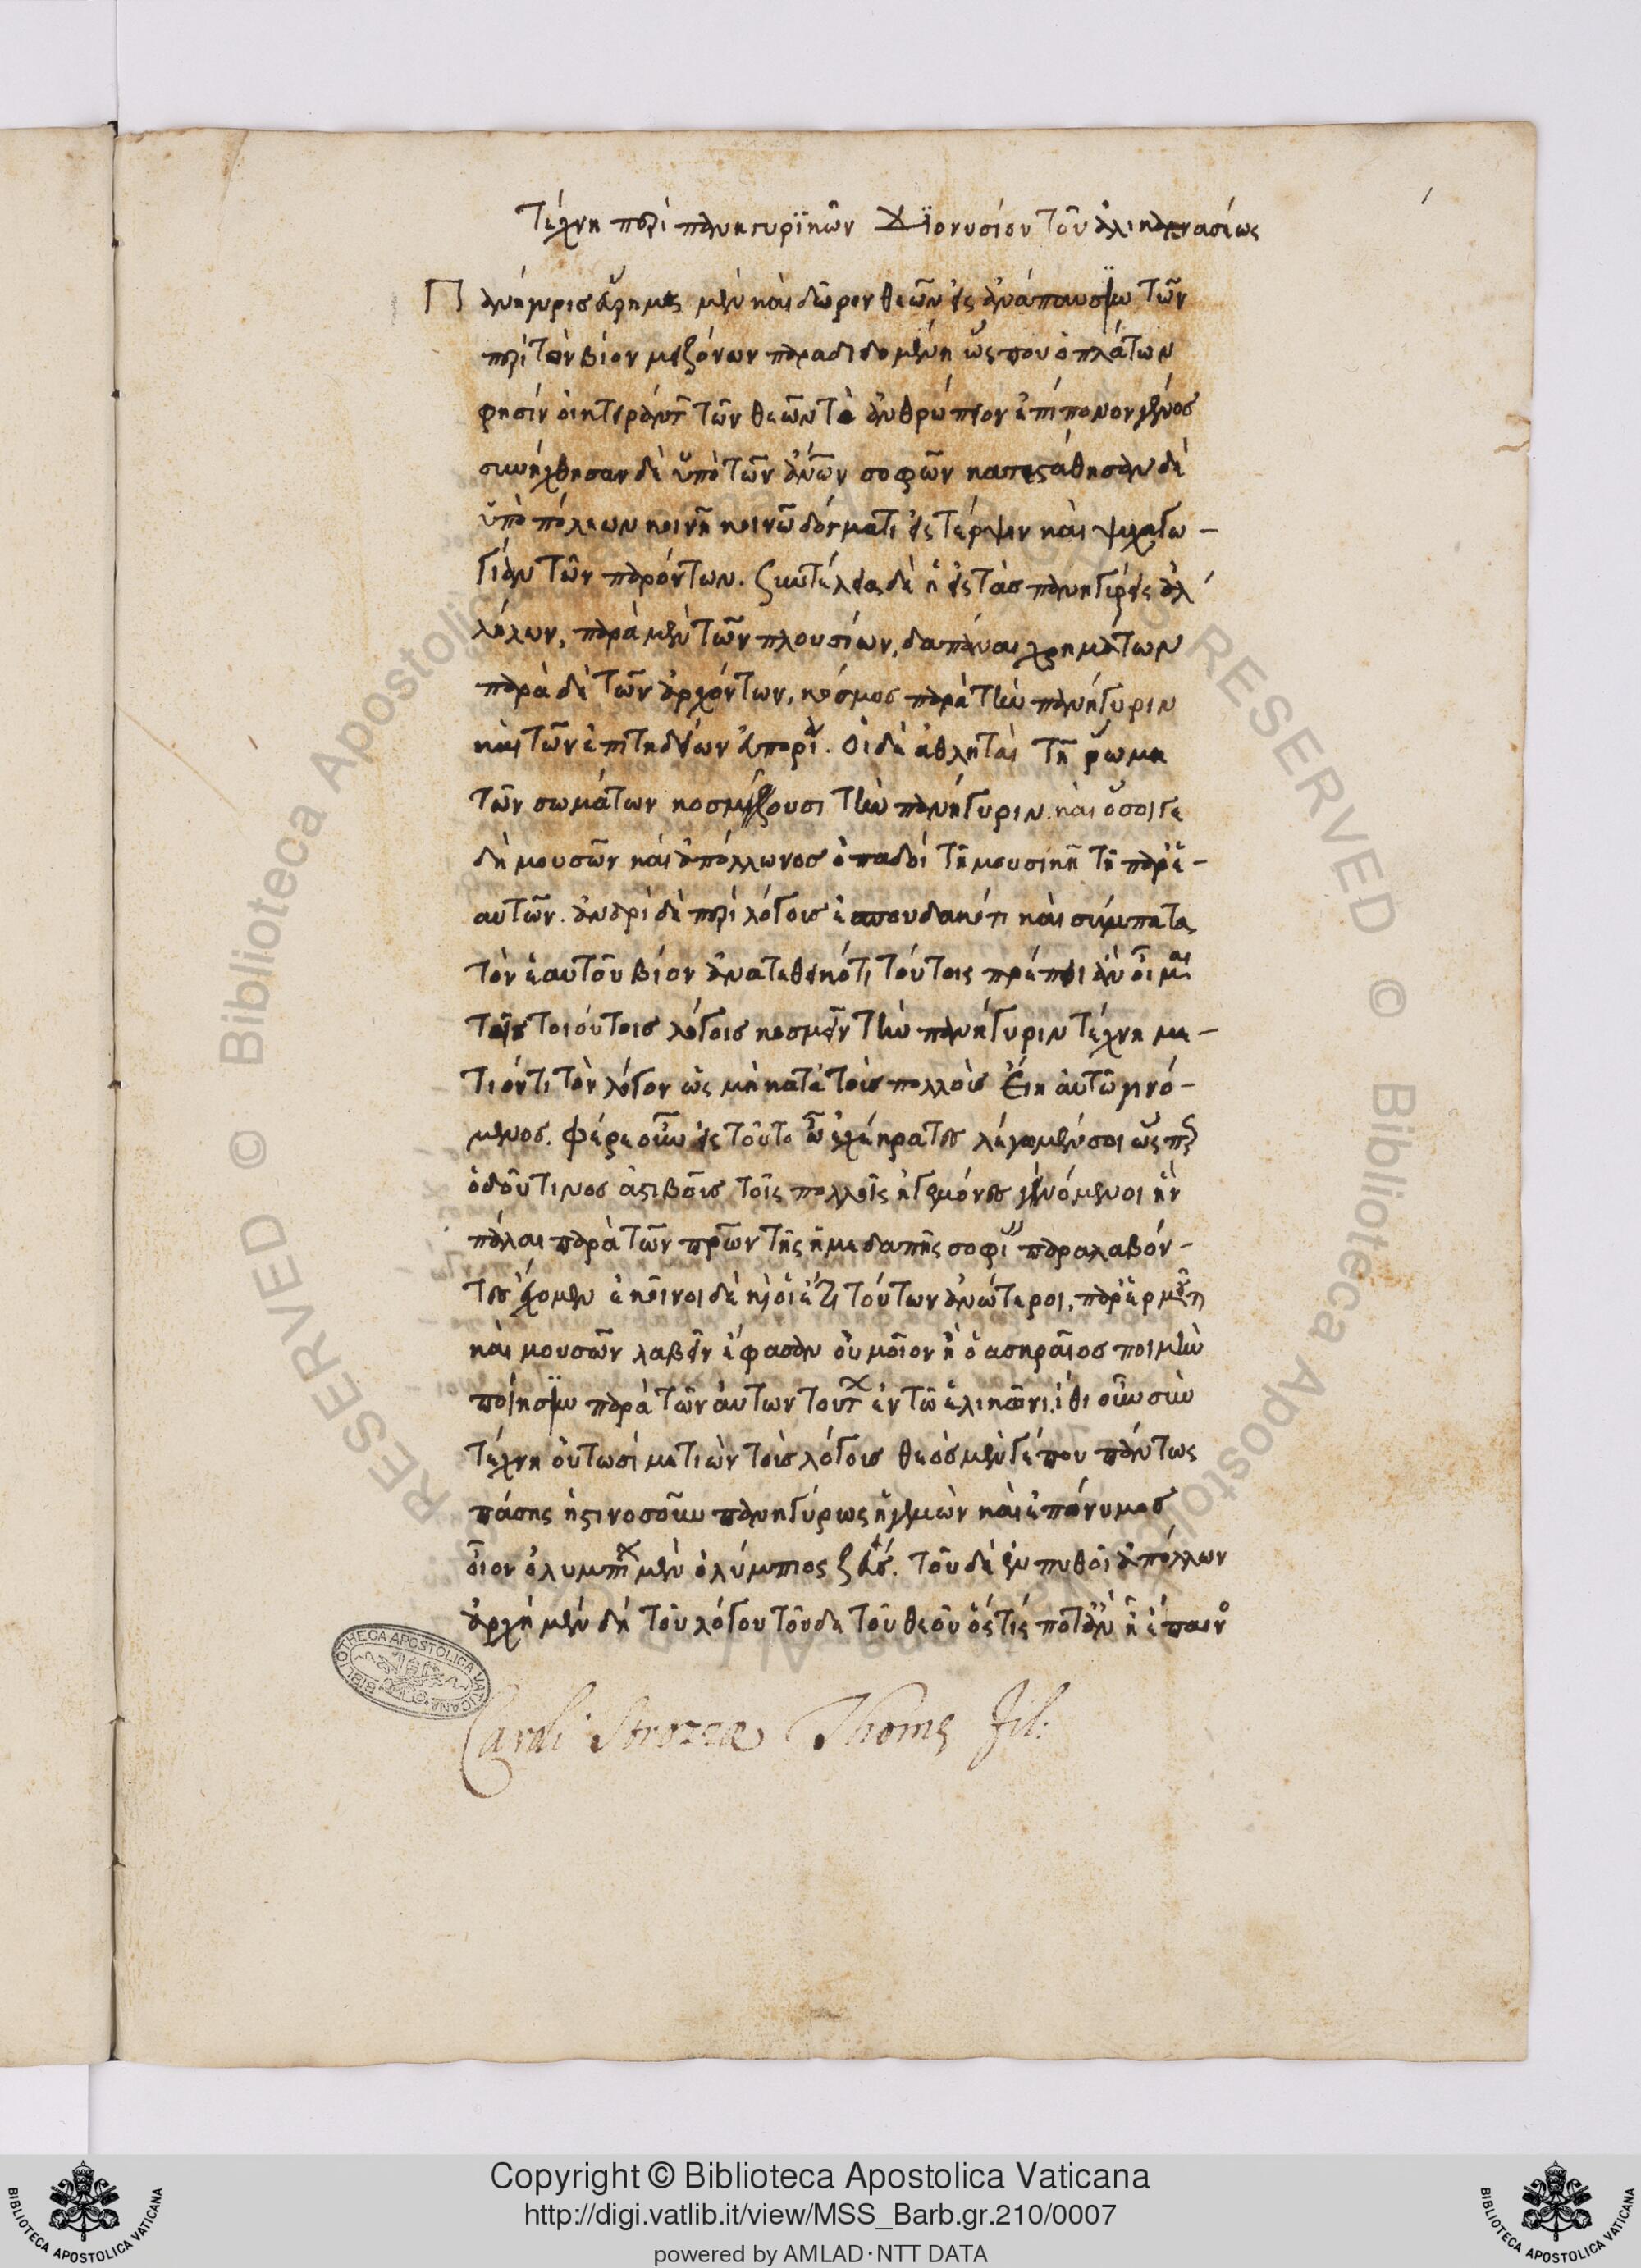 Τέχνη περὶ πανηγυρϊκῶν Διονυσίου τοῦ ἁλικαρνασέως
Πανήγυρις εὕρημα μὲν καὶ δῶρον θεῶν εἰς ἀνάπαυσιν τῶν
περὶ τὸν βίον μειζόνων παραδιδομένη ὥς που ὁ πλάτων
φησίν οἰκτείραντες τῶν θεῶν τὸ ἀνθρώπειον ἐπίπονον γένος
συνήχθησαν δὲ ὑπὸ τῶν ἀνθρώπων σοφῶν κατεστάθησαν δὲ
ὑπὸ πόλεων κοινῇ κοινῶ δόγματι εἰς τέρψιν καὶ ψυχαγω-
γίαν τῶν παρόντων. συντέλεια δὲ ἡ εἰς τὰς πανηγύρεις ἀλ
λήλων, παρὰ μὲν τῶν πλουσίων, δαπάναι χρημάτων
παρὰ δὲ τῶν ἀρχόντων, κόσμος παρὰ τὴν πανήγυριν
καὶ τῶν ἐπιτηδείων εὐπορία. οἱ δὲ ἀθληταὶ τῆ ῥώμη
τῶν σωμάτων κοσμίζουσι τὴν πανήγυριν. καὶ ὅσοι γε
δὴ μουσῶν καὶ ἀπόλλωνος ὀπαδοί τῆ μουσικῆ τῆ παρ' ἑ-
αυτῶν. ἀνδρὶ δὲ περὶ λόγοις ἐσπουδακότι καὶ σύμπατα
τὸν ἑαυτοῦ βίον ἀνατεθεικότι τούτοις πρέποι ἂν οἶμαι
τοῖς τοιούτοις λόγοις κοσμεῖν τὴν πανήγυριν τέχνη με-
τιόντι τὸν λόγον ὡς μὴ κατὰ τοῖς πολλοῖς εἴη αὐτῶ γινό-
μενος. φέρε οὖν εἰς τοῦτο ὦ ἐχέκρατες λέγωμεν σοι ὥσπερ
ὁδοῦ τινος ἀστιβοῦς τοῖς πολλοῖς ἡγεμόνες γενόμενοι ἣν
πάλαι παρὰ τῶν πατέρων τῆς ἡμεδαπῆς σοφίας παραλαβόν-
τες ἔχομεν ἐκεῖνοι δὲ καὶ οἱ ἔτι τούτων ἀνώτεροι, παρ' ἑρμοῦ τε
καὶ μουσῶν λαβεῖν ἔφασαν οὐ μεῖον ἢ ὁ ἀσκραῖος ποιμὴν
ποίησιν παρὰ τῶν αὐτῶν τούτων ἐν τῶ ἑλικῶνι. ἴθι οὖν σὺν
τέχνη οὑτωσὶ μετιὼν τοῖς λόγοις θεὸς μὲν γέ που πάντως
πάσης ἡστινοσοῦν πανηγύρεως ἡγεμὼν καὶ ἐπώνυμος
οἷον ὀλυμπίων μὲν ὀλύμπιος ζεύς. τοῦ δὲ ἐν πυθοῖ ἀπόλλων
ἀρχὴ μὲν δὴ τοῦ λόγου τοῦδε τοῦ θεοῦ ὅστις ποτ' ἂν ἦ ἔπαινος
Caroli Strozzæ Thomę fil:
1
BIBLIOTHECA APOSTOLICA VATICANA
© Biblioteca Apostolica Vaticana ALL RIGHTS RESERVED
Copyright © Biblioteca Apostolica Vaticana
http://digi.vatlib.it/view/MSS_Barb.gr.210/0007
powered by AMLAD·NTT DATA
BIBLIOTECA APOSTOLICA VATICANA
BIBLIOTECA APOSTOLICA VATICANA